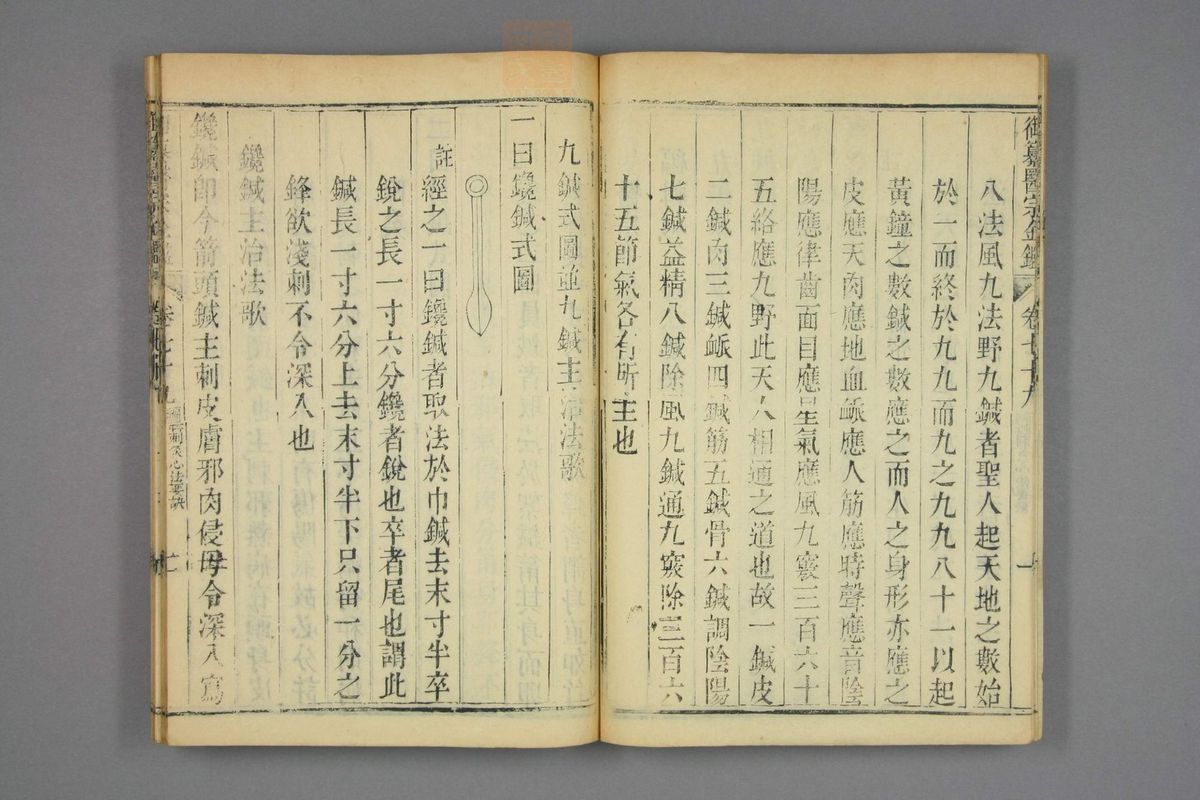 御纂醫宗金鑑
卷七十九
八法風九法野九鍼者聖人起天地之數始
於一而終於九九而九之九九八十一以起
黃鐘之數鍼之數應之而人之身形亦應之
皮應天肉應地血脈應人筋應時聲應音陰
陽應律齒面目應星氣應風九竅三百六十
五絡應九野此天人相通之道也故一鍼皮
二鍼肉三鍼脈四鍼筋五鍼骨六鍼調陰陽
七鍼益精八鍼除風九鍼通九竅除三百六
十五節氣各有所主也
九鍼式圖並九鍼主治法歌
一曰鑱鍼式圖
註經之一曰鑱鍼者取法於巾鍼去末寸半卒
銳之長一寸六分鑱者銳也卒者尾也謂此
鍼長一寸六分上去末寸半下只留一分之
鋒欲淺刺不令深入也
鑱鍼主治法歌
鑱鍼即今箭頭鍼主刺皮膚邪肉侵毋令深入寫
卷七十九
刺灸心法要訣